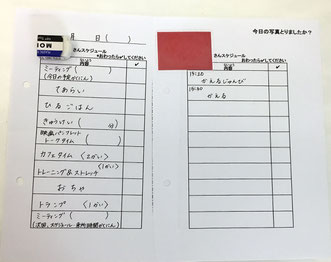 MONO
月　日（　）
今日の写真とりましたか?
さんスケジュール
おわったら✓してください
内容
✓
ミーティング（　）
(今日の予定かくにん)
てあらい
ひるごはん
きゅうけい（　分）
映画パンフレット
トークタイム（　）
カフェタイム 〈2かい〉
〈1かい〉
トレーニング&ストレッチ
おちゃ
トランプ 〈1かい〉
ミーティング（　）
さんスケジュール
おわったら✓してください
内容
✓
15:20
かえるじゅんび
15:30
かえる